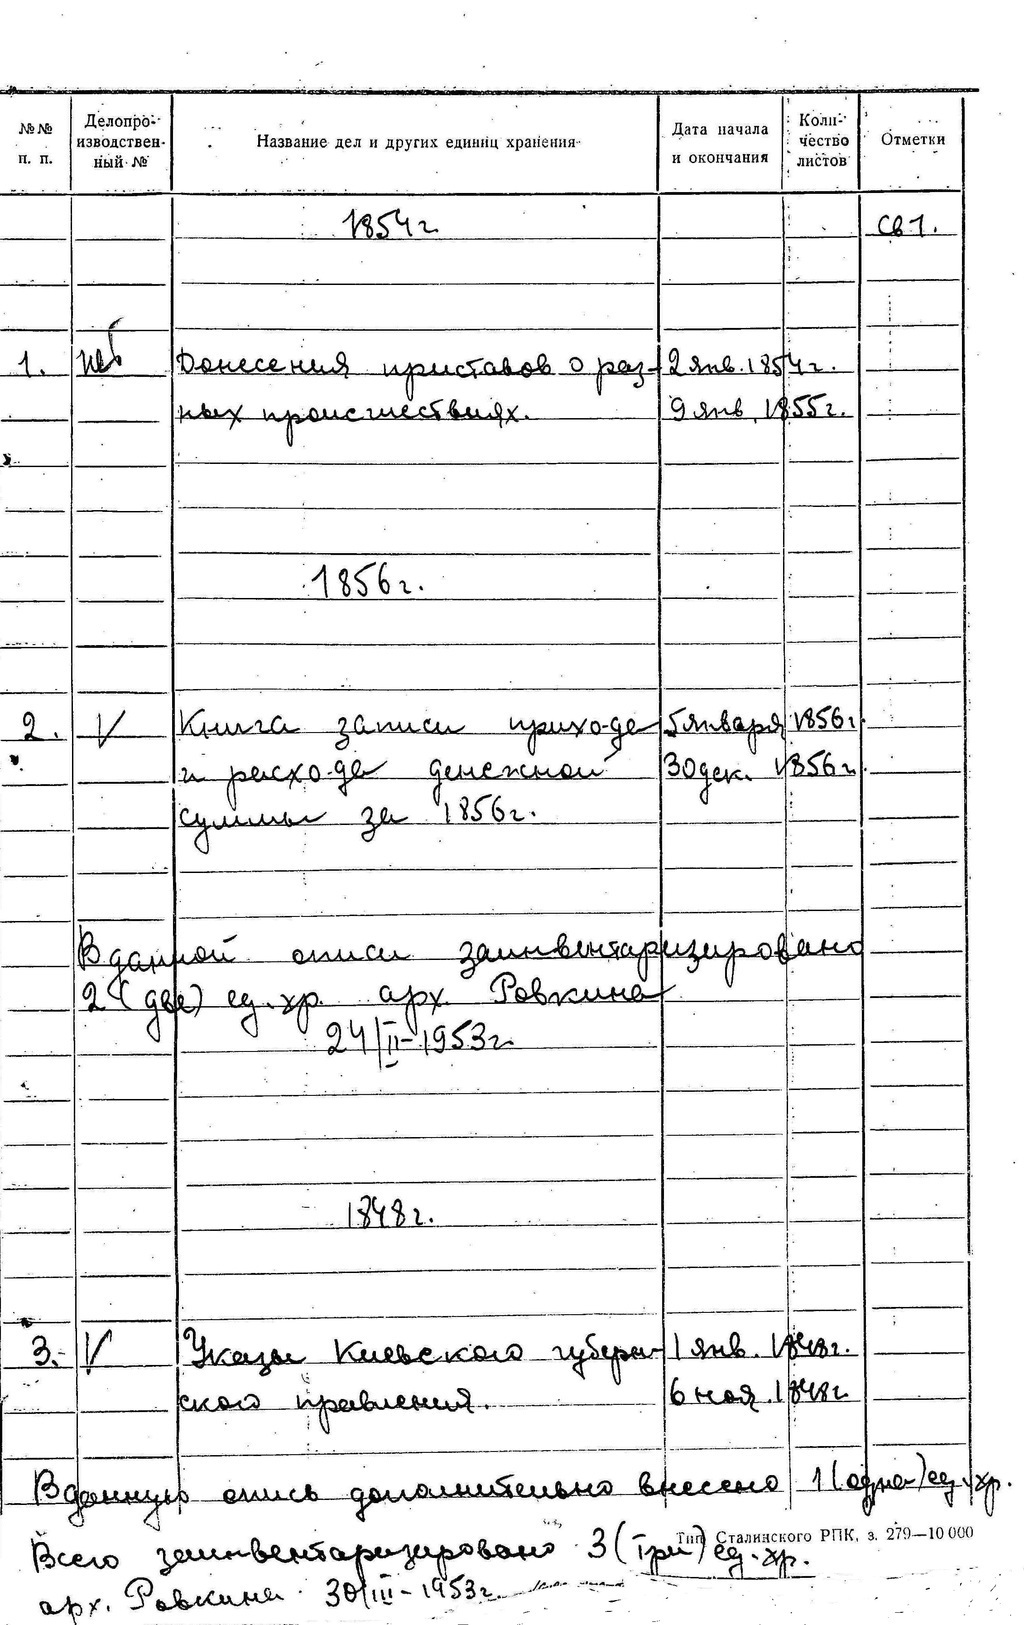 №№ п. п.
Делопроизводственный №
Название дел и других единиц хранения
Дата начала и окончания
Количество листов
Отметки
1854 г.
св 1.
1. Донесения приставов о раз- 2 янв. 1854 г.
ных происшествиях. 9 янв. 1855 г.
1856 г.
2. V Книга записи прихода 5 января 1856 г.
и расхода денежной 30 дек. 1856 г.
суммы за 1856 г.
В данной описи заинвентаризировано
2 (две) ед. хр. арх. Ровкина
24/II-1953 г.
1848 г.
3. V Указы Киевского губерн- 1 янв. 1848 г.
ского правления. 6 ноя. 1848 г.
В данную опись дополнительно внесено 1 (одна) ед. хр.
Тип. Сталинского РПК, з. 279—10 000
Всего заинвентаризировано 3 (Три) ед. хр.
арх. Ровкина 30/III-1953 г.